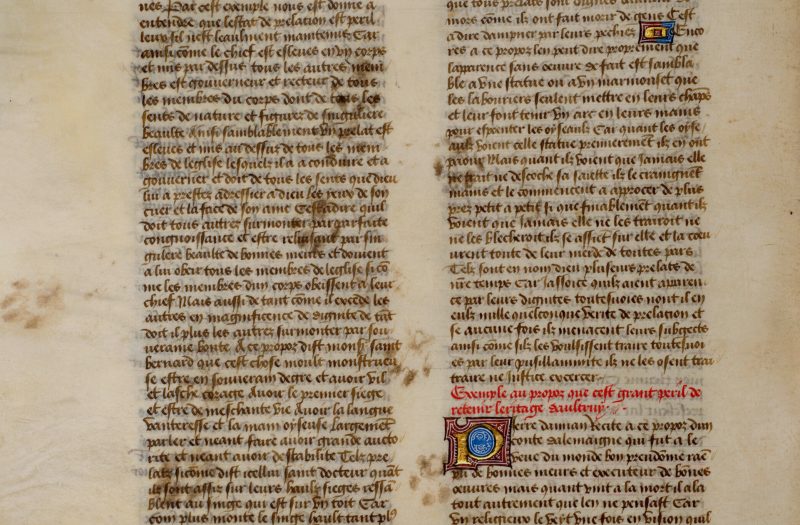 nes Par cest exemple nous est donne a
entendre que lestat de prelation est peril
leux sil nest leaulment maintenu Car
ainsi come le chief est esleves en vng corps
et mis par dessus tous les autres mem
bres est gouverneur et recteur de tous
les membres du corps dont de tous les
sens de nature et figurez de singuliere
beaulte Ainsi samblablement vng prelat est
esleves et mis au dessuz de tous les mem
bres de leglise lesquelz il a a conduire et a
gouverner et doit de tous les sens que dieu
lui a prestez adressier a dieu les yeux de son
cuer et la face de son ame Cest a dire quil
doit tous autres surmonter par parfaite
congnoissance et estre reluisant par sin
gulere beaulte de bonnes meurs et doivent
a lui obeir tous les membres de leglise si cõ
me les membres dun corps obeissent a leur
chief Mais aussi de tant come il excede les
autres en magnificence de dignite de tãt
doit il plus les autres surmonter par sou
veraine bonte A ce propoz dist monsr saint
bernard que cest chose moult monstrueu
se estre en souverain degre et avoir vil
et lasche corage avoir le premier siege
et estre de meschante vie avoir la langue
vanteresse et la main oyseuse largement
parler et neant faire avoir grande aucto
rite et neant avoir de stabilite Telz pre
latz si cõme dist icellui saint docteur quãt
ilz sont assiz sur leurs haulz sieges ressã
blent au singe qui est sur vng toit Car
com plus monte le singe hault tant pl9
que tous prelats sont dignes
mors cõme ilz ont fait morir de gens Cest
a dire dampner par leurs pechiez Enco
res a ce propoz len peut dire proprement que
lapparence sans oeuvre de fait est sambla
ble a vne statue ou a vng marmouset que
les labouriers seulent mettre en leurs chãps
et leur font tenir vng arc en leurs mains
pour espoenter les oyseaulz Car quant les oyse
aulz voient celle statue premierement ilz en ont
paour Mais quant ilz voient que Jamais elle
ne trait ne descoche sa saiette ilz le craingnẽt
mains et le commencent a approcer de plus
prez petit a petit si que finablement quant ilz
voient que Jamais elle ne les trairoit ne
ne les blecheroit ilz se assiet sur elle et la coeu
vrent toute de leur merde de toutes pars
Telz sont en nom dieu plusieurs prelats de
nre temps Car Jassoice quilz aient apparen
ce par leurs dignites toutesuoies nont il en
eulz nulle quelconque verite de prelation et
se aucune fois ilz menacent leurs subgects
ainsi come silz les voulsissent traire toutesuoi
es par leur pusillanimite ilz ne les osent trai
traire ne justice excercer
Exemple au propos que cest grant peril de
retenir leritage daultruy
Pierre damian Recite a ce propoz dun
conte dalemaigne qui fut a le
veue du monde bon preudõme raẽ
pli de bonnes meurs et executeur de bõnes
oeuvres mais quant vint a la mort il ala
tout autrement que len ne pensast Car
vng religieux le veyt vne fois en vision quil